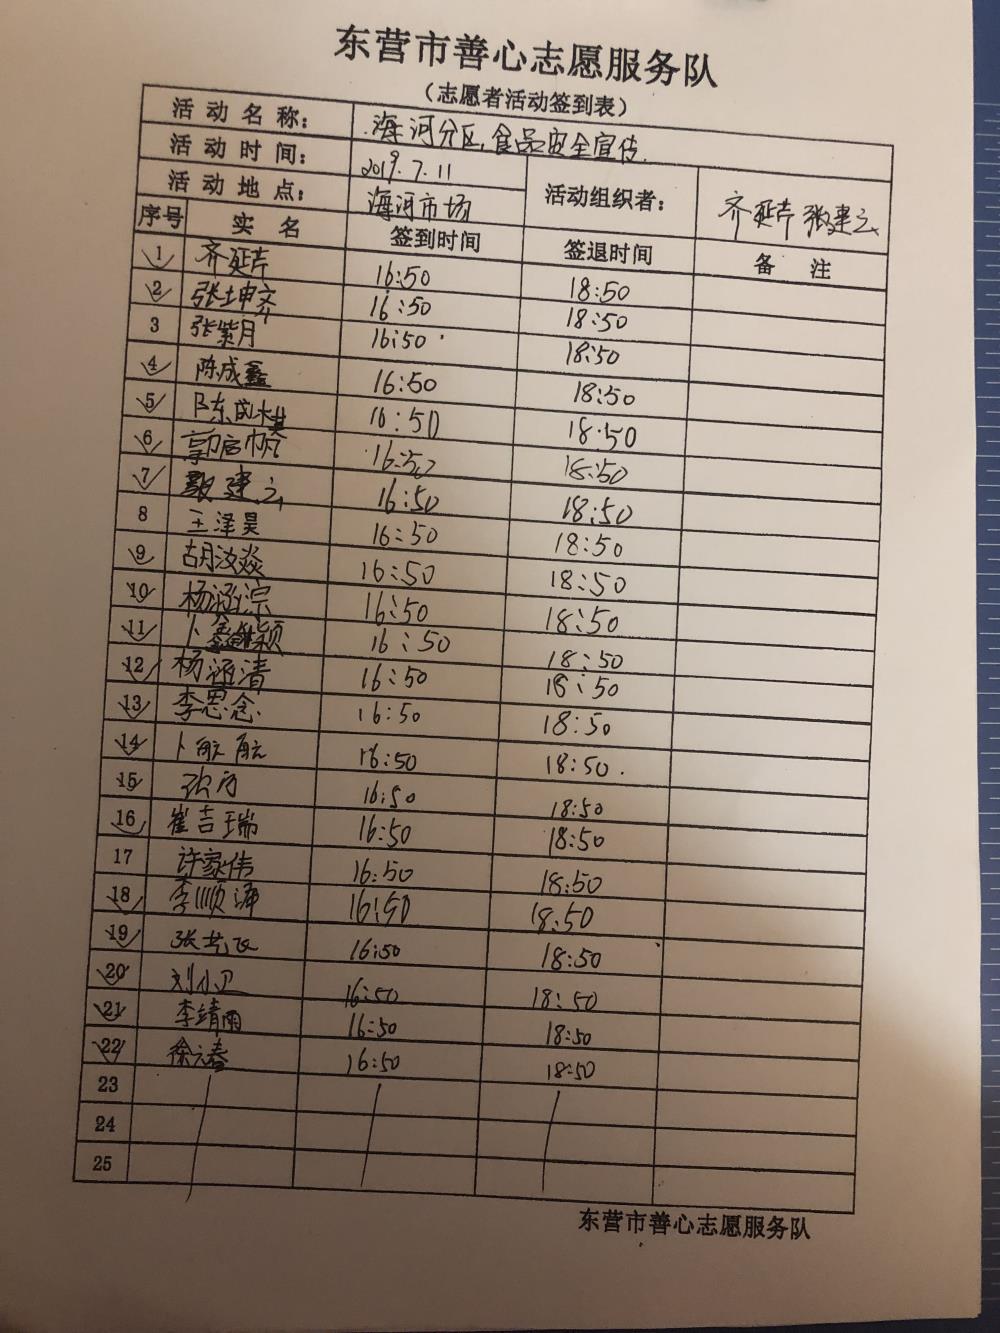 东营市善心志愿服务队
（志愿者活动签到表）
活动名称： 海河分区食品安全宣传
活动时间： 2019.7.11
活动地点： 海河市场
活动组织者： 齐延芹 张建云
序号 实名 签到时间 签退时间 备注
1 齐延芹 16:50 18:50
2 张坤 16:50 18:50
3 张紫月 16:50 18:50
4 陈成鑫 16:50 18:50
5 陈成棋 16:50 18:50
6 郭启帆 16:50 18:50
7 建云 16:50 18:50
8 王泽昊 16:50 18:50
9 胡汝焱 16:50 18:50
10 杨涵淙 16:50 18:50
11 卜鑫颖 16:50 18:50
12 杨涵清 16:50 18:50
13 李思念 16:50 18:50
14 卜航航 16:50 18:50
15 张 16:50 18:50
16 崔吉瑞 16:50 18:50
17 许家伟 16:50 18:50
18 李顺涛 16:50 18:50
19 张艺 16:50 18:50
20 刘小卫 16:50 18:50
21 李靖雨 16:50 18:50
22 徐元春 16:50 18:50
23
24
25
东营市善心志愿服务队